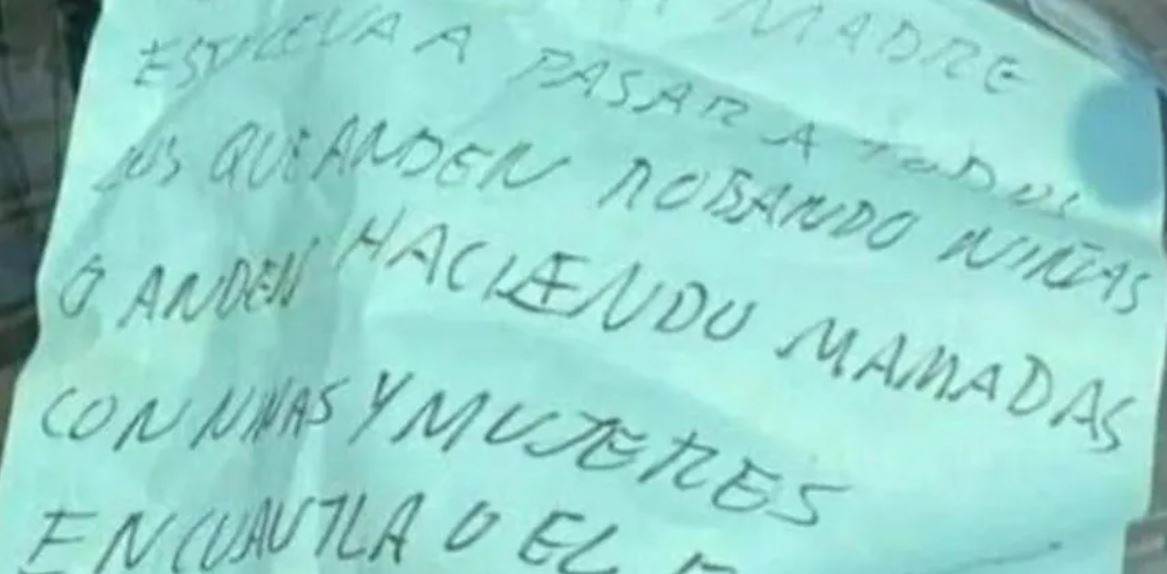 MADRE
ESTO LE VA A PASAR A TODOS
LOS QUE ANDEN ROBANDO NIÑAS
O ANDEN HACIENDO MAMADAS
CON NIÑAS Y MUJERES
EN CUAUTLA O EL